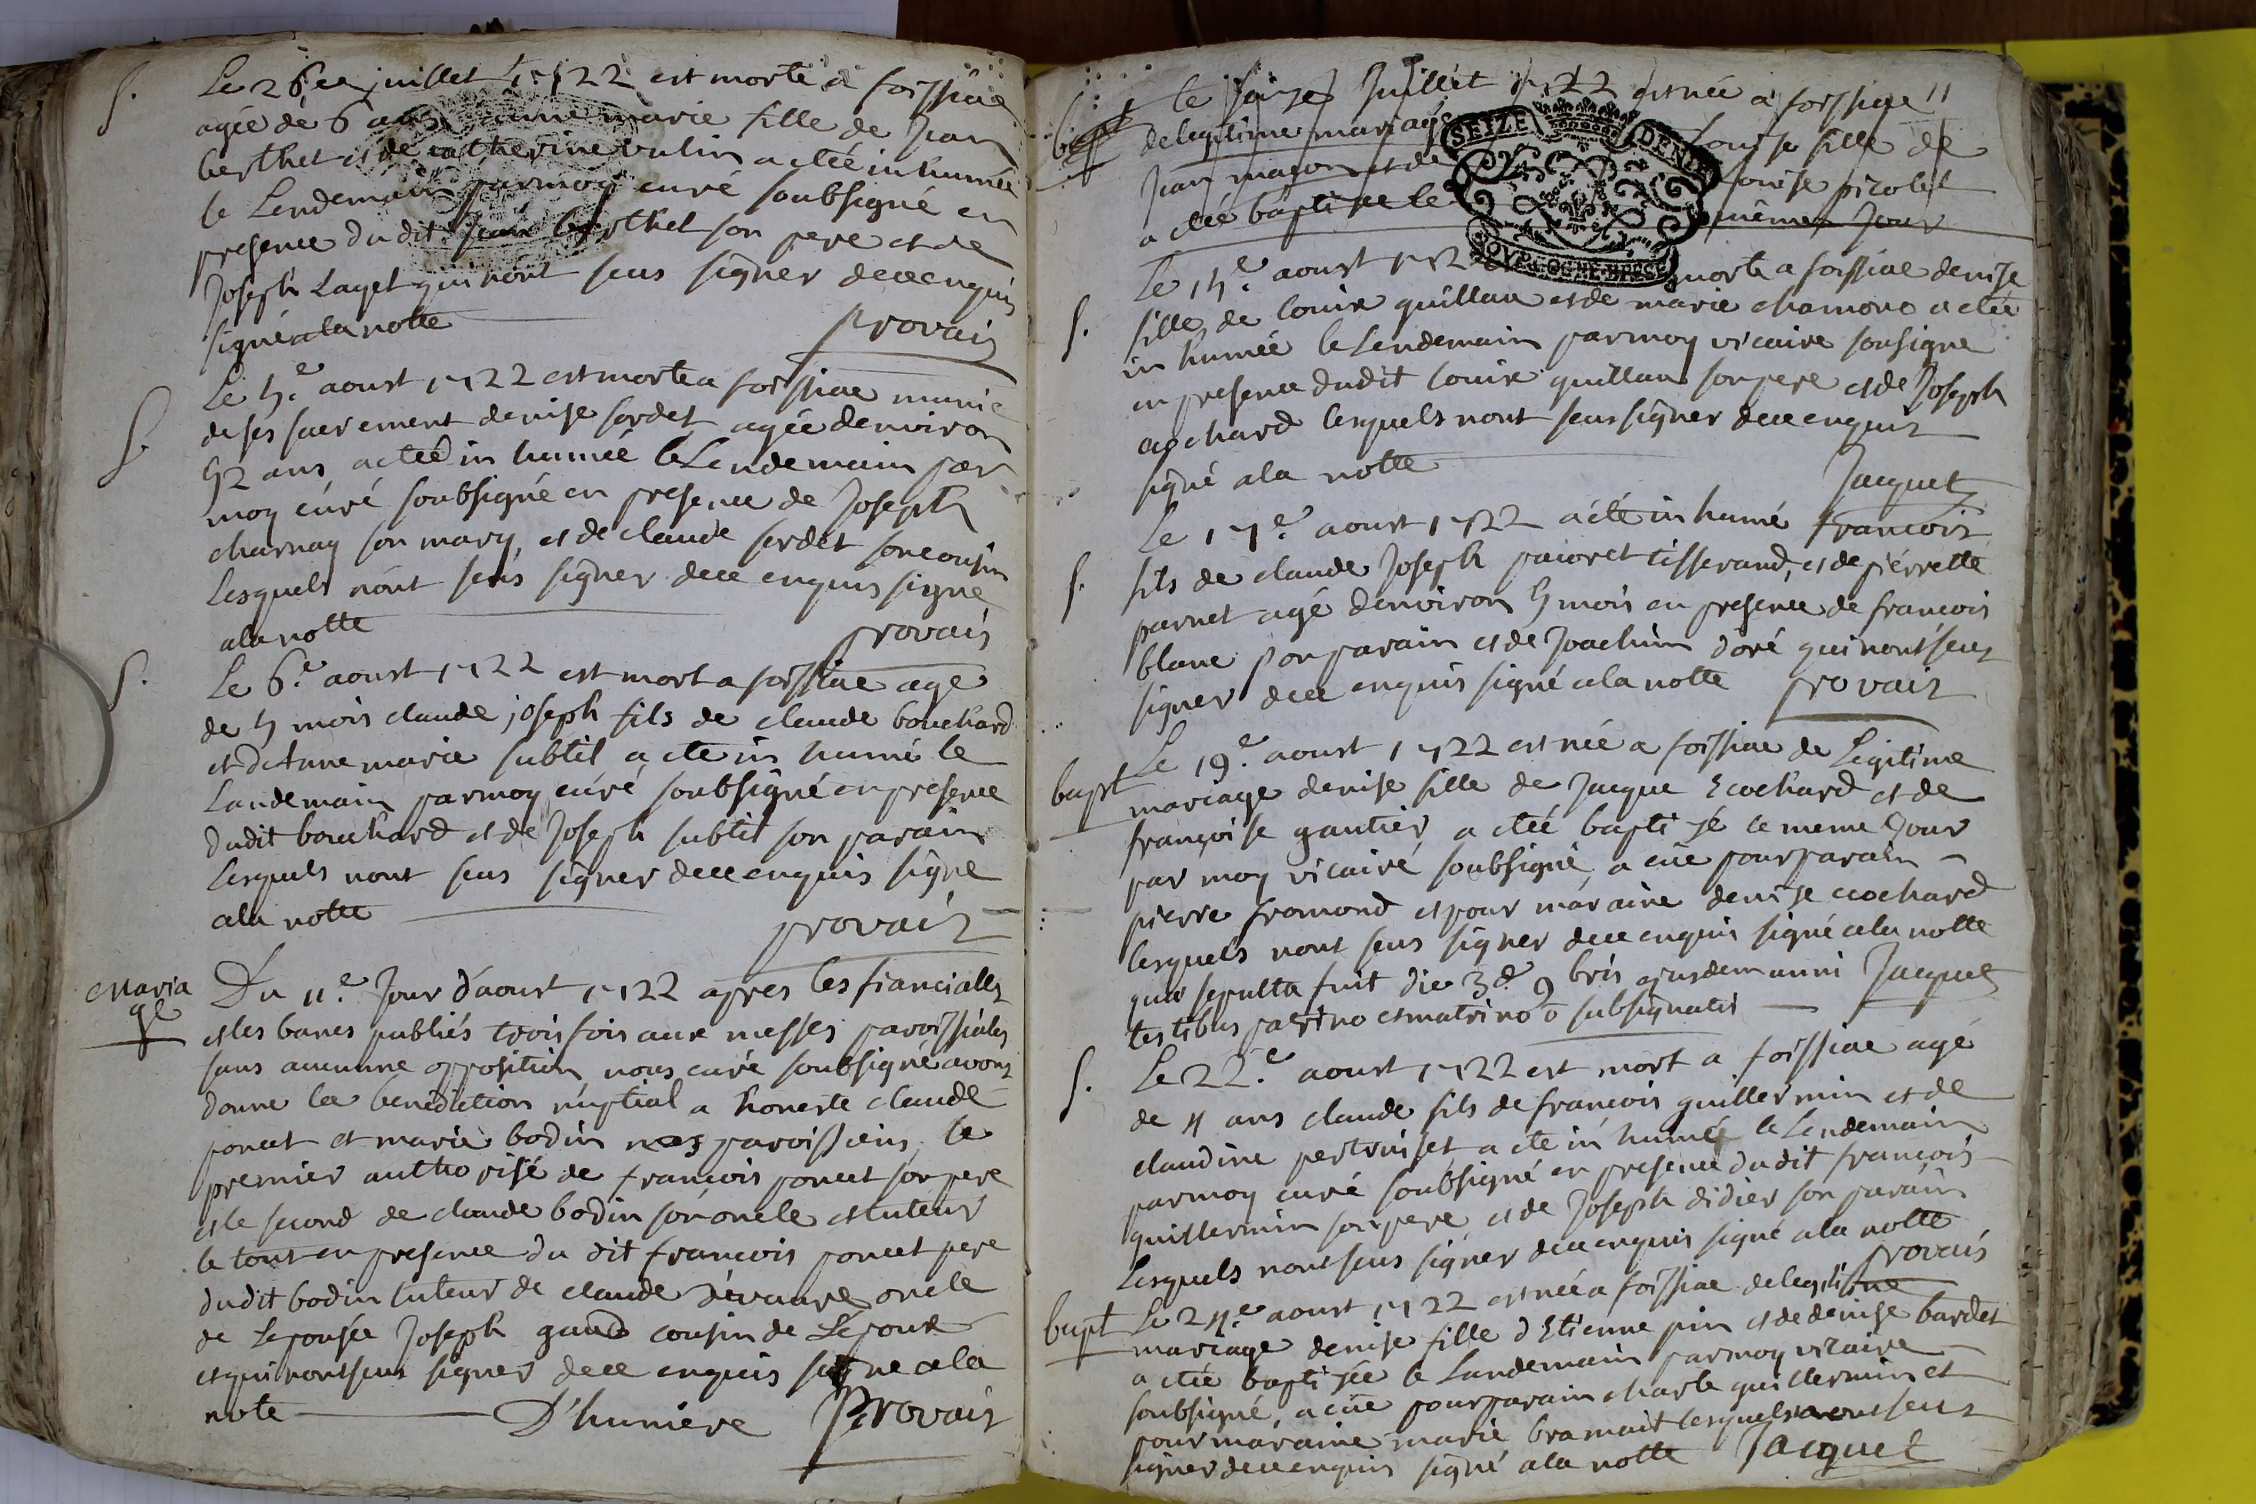 S.
Le 26.e juillet 1722 est morte a foissiae
agée de 6 ans anne marie fille de Jean
berthet et de catherine vulin a eteé in humée
le Lendemain parmoy curé soubsigné en
presence dudit Jean berthet son pere et de
Joseph Laget qui nont seus signer dece enquis
signé ala notte provais
S.
Le 5.e aoust 1722 est morte a foissiae munie
de ses sacrement denise sordet agée denviron
52 ans a eteé in humeé le Lendemain par
moy curé soubsigné en presence de Joseph
charnay son mary, et de claude sordet son cousin
Lesquels nont seus signer dece enquis signé
ala notte provais
S.
Le 6.e aoust 1722 est mort a foissiae agé
de 5 mois claude joseph fils de claude bouchard
et d'Anne marie subtil a eté in humé le
Landemain parmoy curé soubsigné en presence
dudit bouchard et de Joseph subtil son parain
Lesquels nont seus signer dece enquis signé
ala notte provais
Maria
ge
Du 11.e Jour d'aoust 1722 apres les fiancialles
et les bancs publiés trois fois aux messes paroissiales
sans aucunne opposition nous curé soubsigné avons
donné la benediction nuptial a honeste claude
poncet et marie bodin nos paroissiens, le
premier authorisé de francois poncet son pere
et le second de claude bodin son oncle et tuteur
le tout en presence du dit francois poncet pere
dudit bodin tuteur de claude oncle
de Lepousée Joseph gaud cousin de Lepoux
et qui nont seus signer dece enquis signe ala
note D'humiere Provais
bapt
le Juillet 1722 est née a foissiae
de legitime mariage Louise fille de
Jean maçon et de Louise picolet
a eteé baptisée le même Jour
SEIZE DENIE
BOURGOGNE BRESSE
S.
Le 15.e aoust 1722 morte a foissiae denise
fille de Louis guillau et de marie chamono a eteé
in humée le Lendemain parmoy vicaire sousigné
en presence dudit Louis guillau son pere et de Joseph
cochard lesquels nont seus signer dece enquis
signé ala notte Jacquet
S.
Le 17.e aoust 1722 a eté in humé francois
fils de claude Joseph paioret tisserand, et de pierrette
parnet agé denviron 5 mois en presence de francois
blanc son parain et de Joachim doré qui nont seus
signer dece enquis signé ala notte provais
bapt
Le 19.e aoust 1722 est née a foissiae de Legitime
mariage denise fille de Jacque Ecochard et de
françoise gautier, a eteé baptisé le meme Jour
par moy vicaire soubsigné, a eüe pour parain
pierre fromond et pour maraine denise ecochard
lesquels nont seus signer dece enquis signé ala notte
quae sepulta fuit die 3.a 9 bris ejusdem anni Jacquet
testibus patrino et matrino subsignatis
S.
Le 22.e aoust 1722 est mort a foissiae agé
de 4 ans claude fils de francois guillermin et de
claudine pertuiset a eté in humé le Lendemain
parmoy curé soubsigné en presence dudit francois
guillermin son pere et de Joseph didier son parain
Lesquels nont seus signer dece enquis signé ala notte
provais
bapt
Le 24.e aoust 1722 est née a foissiae de legitime
mariage denise fille d'Etienne pin et de denise bardet
a eteé baptisée le Landemain parmoy vicaire
soubsigné, a eüe pour parain charle guillermin et
pour maraine marie bramait lesquels nont seus
signer dece enquis signé ala notte Jacquet